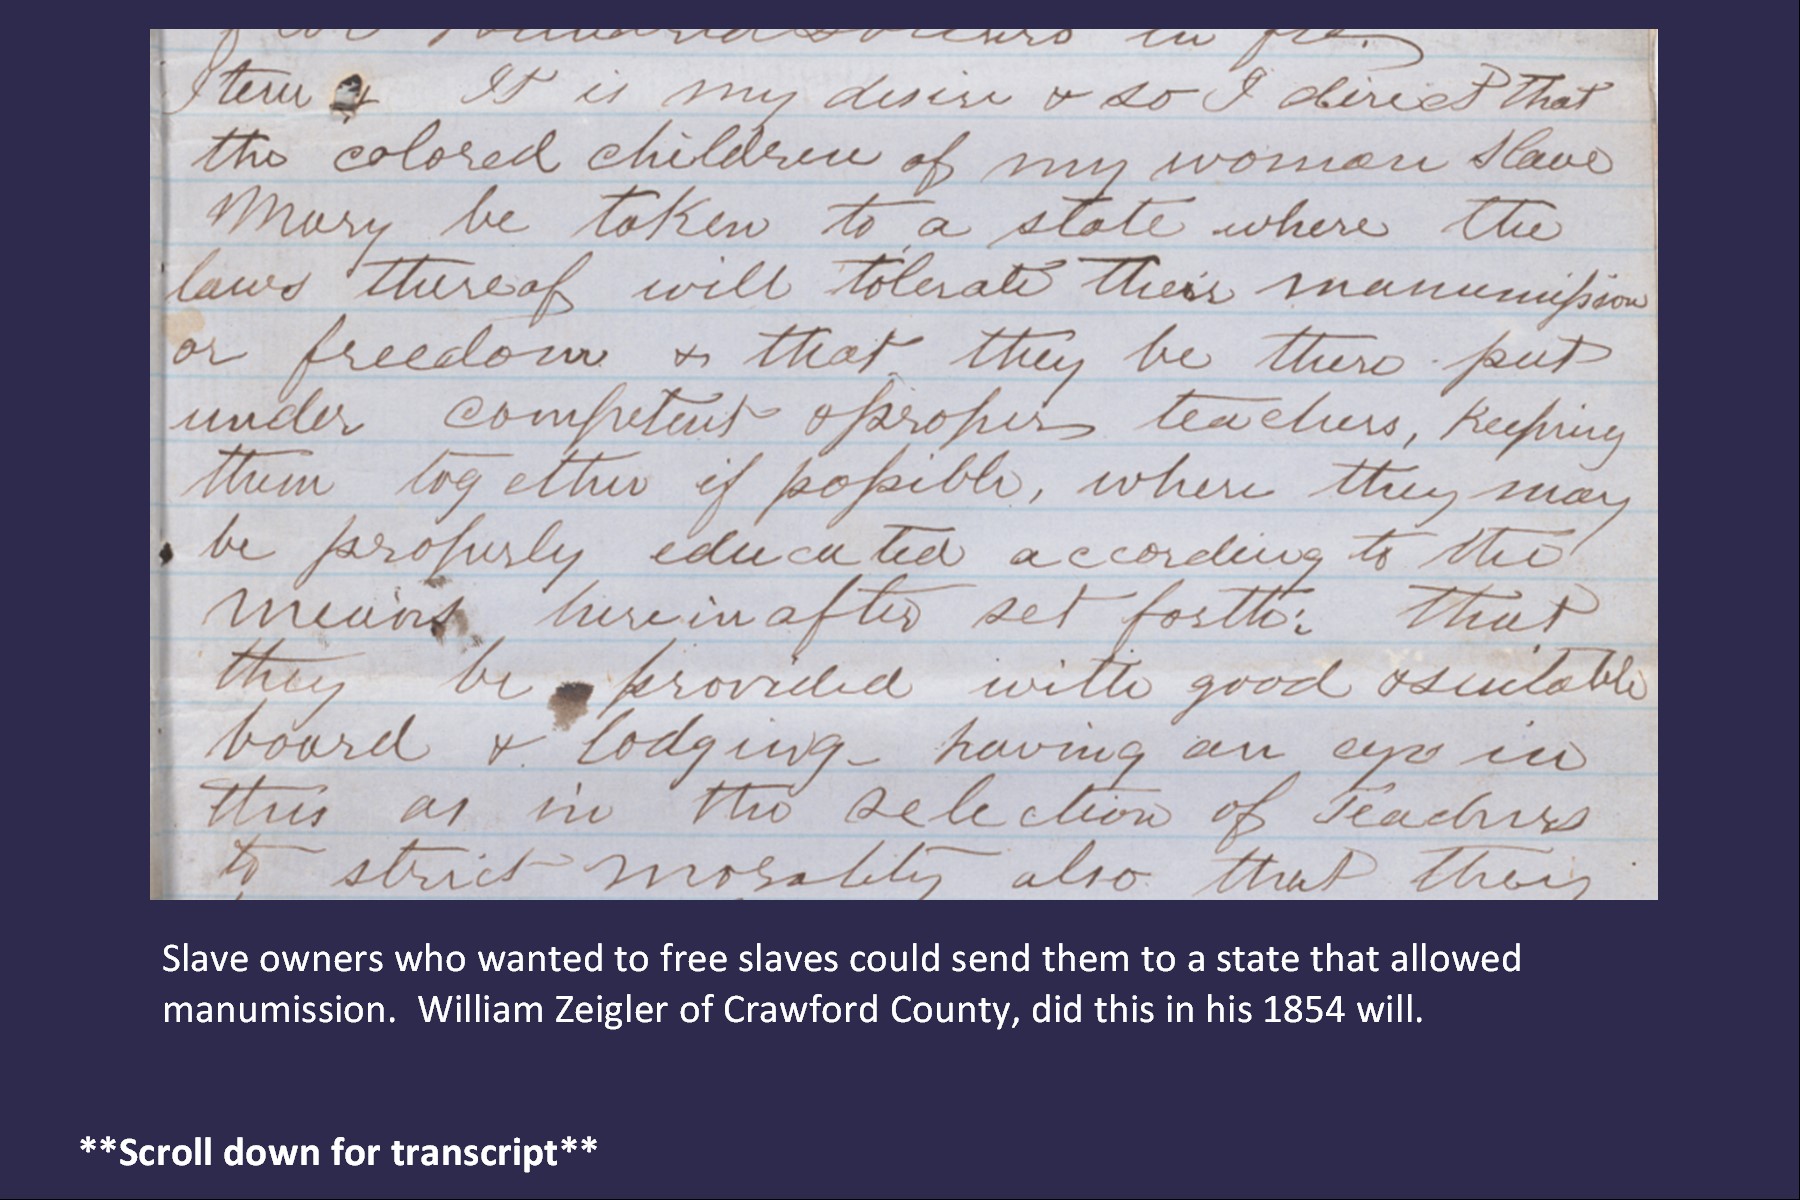 in fee.
Item 4 It is my desire & so I direct that
the colored children of my woman slave
Mary be taken to a state where the
laws thereof will tolerate their manumission
or freedom & that they be there put
under competent & proper teachers, keeping
them together if possible, where they may
be properly educated according to the
means hereinafter set forth; that
they be provided with good & suitable
board & lodging - having an eye in
this as in the selection of Teachers
to strict morality also that they
Slave owners who wanted to free slaves could send them to a state that allowed
manumission.  William Zeigler of Crawford County, did this in his 1854 will.
**Scroll down for transcript**